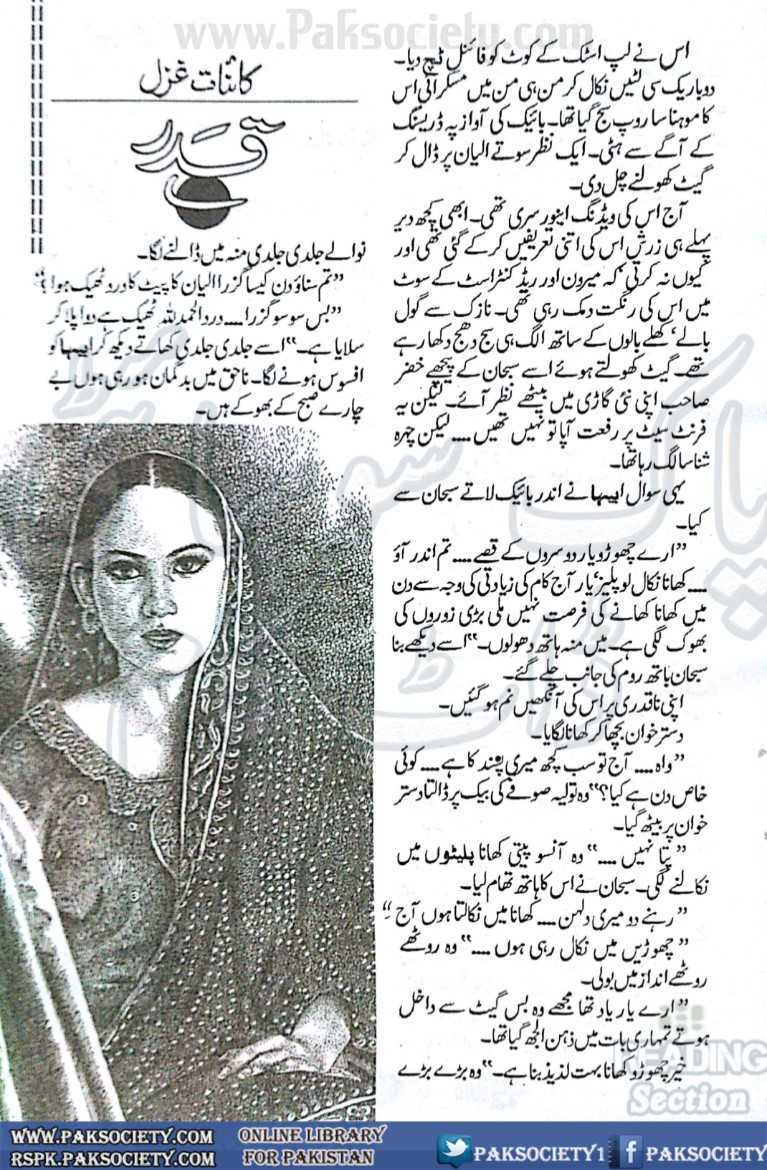 www.Paksociety.com
کائنات غزل
قدر
اس نے لپ اسٹک کے کوٹ کو فائنل ٹچ دیا۔
دو باریک سی لٹیں نکال کر من ہی من میں مسکرائی اس
کا موہنا سا روپ سج گیا تھا۔ بائیک کی آواز پہ ڈریسنگ
کے آگے سے ہٹی۔ ایک نظر سوتے الیان پر ڈال کر
گیٹ کھولنے چل دی۔
آج اس کی ویڈنگ اینورسری تھی۔ ابھی کچھ دیر
پہلے ہی زرش اس کی اتنی تعریفیں کر کے گئی تھی اور
کیوں نہ کرتی‘ کہ میرون اور ریڈ کنٹراسٹ کے سوٹ
میں اس کی رنگت دمک رہی تھی۔ نازک سے گول
بالے‘ کھلے بالوں کے ساتھ الگ ہی سج دھج دکھا رہے
تھے۔ گیٹ کھولتے ہوئے اسے سبحان کے پیچھے خضر
صاحب اپنی نئی گاڑی میں بیٹھے نظر آئے۔ لیکن یہ
فرنٹ سیٹ پر رفعت آپا تو نہیں تھیں .... لیکن چہرہ
شناسا لگ رہا تھا۔
یہی سوال ابیہا نے اندر بائیک لاتے سبحان سے
کیا۔
”ارے چھوڑو یار دوسروں کے قصے .... تم اندر آؤ
.... کھانا نکال لو پلیز‘ یار آج کام کی زیادتی کی وجہ سے دن
میں کھانا کھانے کی فرصت نہیں ملی بڑی زوروں کی
بھوک لگی ہے۔ میں منہ ہاتھ دھولوں۔“ اسے دیکھے بنا
سبحان باتھ روم کی جانب چلے گئے۔
اپنی ناقدری پر اس کی آنکھیں نم ہو گئیں۔
دستر خوان بچھا کر کھانا لگایا۔
”واہ .... آج تو سب کچھ میری پسند کا ہے .... کوئی
خاص دن ہے کیا؟“ وہ تولیہ صوفے کی بیک پر ڈالتا دستر
خوان پر بیٹھ گیا۔
”پتا نہیں ....“ وہ آنسو پیتی کھانا پلیٹوں میں
نکالنے لگی۔ سبحان نے اس کا ہاتھ تھام لیا۔
”رہنے دو میری دلہن .... کھانا میں نکالتا ہوں آج۔“
”چھوڑیں میں نکال رہی ہوں ....“ وہ روٹھے
روٹھے انداز میں بولی۔
”ارے یار یاد تھا مجھے وہ بس گیٹ سے داخل
ہوتے تمہاری بات میں ذہن الجھ گیا تھا۔
خیر چھوڑو کھانا بہت لذیذ بنا ہے۔“ وہ بڑے بڑے
نوالے جلدی جلدی منہ میں ڈالنے لگا۔
”تم سناؤ دن کیسا گزرا الیان کا پیٹ کا درد ٹھیک ہوا؟“
”بس سو سو گزرا .... درد الحمد للہ ٹھیک ہے دوا پلا کر
سلایا ہے۔“ اسے جلدی جلدی کھاتے دیکھ کر ابیہا کو
افسوس ہونے لگا۔ ناحق میں بدگمان ہو رہی ہوں بے
چارے صبح کے بھوکے ہیں۔
پاک سوسائٹی
READING
Section
WWW.PAKSOCIETY.COM
RSPK.PAKSOCIETY.COM
ONLINE LIBRARY
FOR PAKISTAN
PAKSOCIETY1
PAKSOCIETY